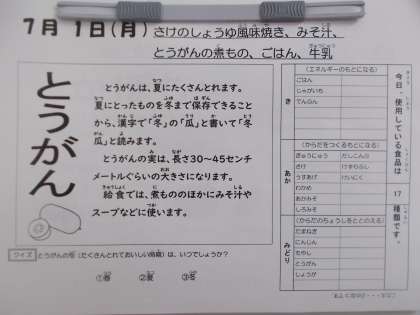 7月 1日(月) さけのしょうゆ風味焼き、みそ汁、
とうがんの煮もの、ごはん、牛乳
とうがん
とうがんは、夏にたくさんとれます。
夏にとったものを冬まで保存できること
から、漢字で「冬」の「瓜」と書いて「冬
瓜」と読みます。
とうがんの実は、長さ30～45センチ
メートルぐらいの大きさになります。
給食では、煮もののほかにみそ汁や
スープなどに使います。
クイズ とうがんの旬(たくさんとれておいしい時期)は、いつでしょうか?
①春 ②夏 ③冬
今日、使用している食品は
17
種類です。
き
(エネルギーのもとになる)
ごはん
じゃがいも
でんぷん
あか
(からだをつくるもとになる)
ぎゅうにゅう
さけ
うすあげ
けいにく
わかめ
あかみそ
しろみそ
みどり
(からだのちょうしをととのえる)
たまねぎ
にんじん
もやし
とうがん
しょうが